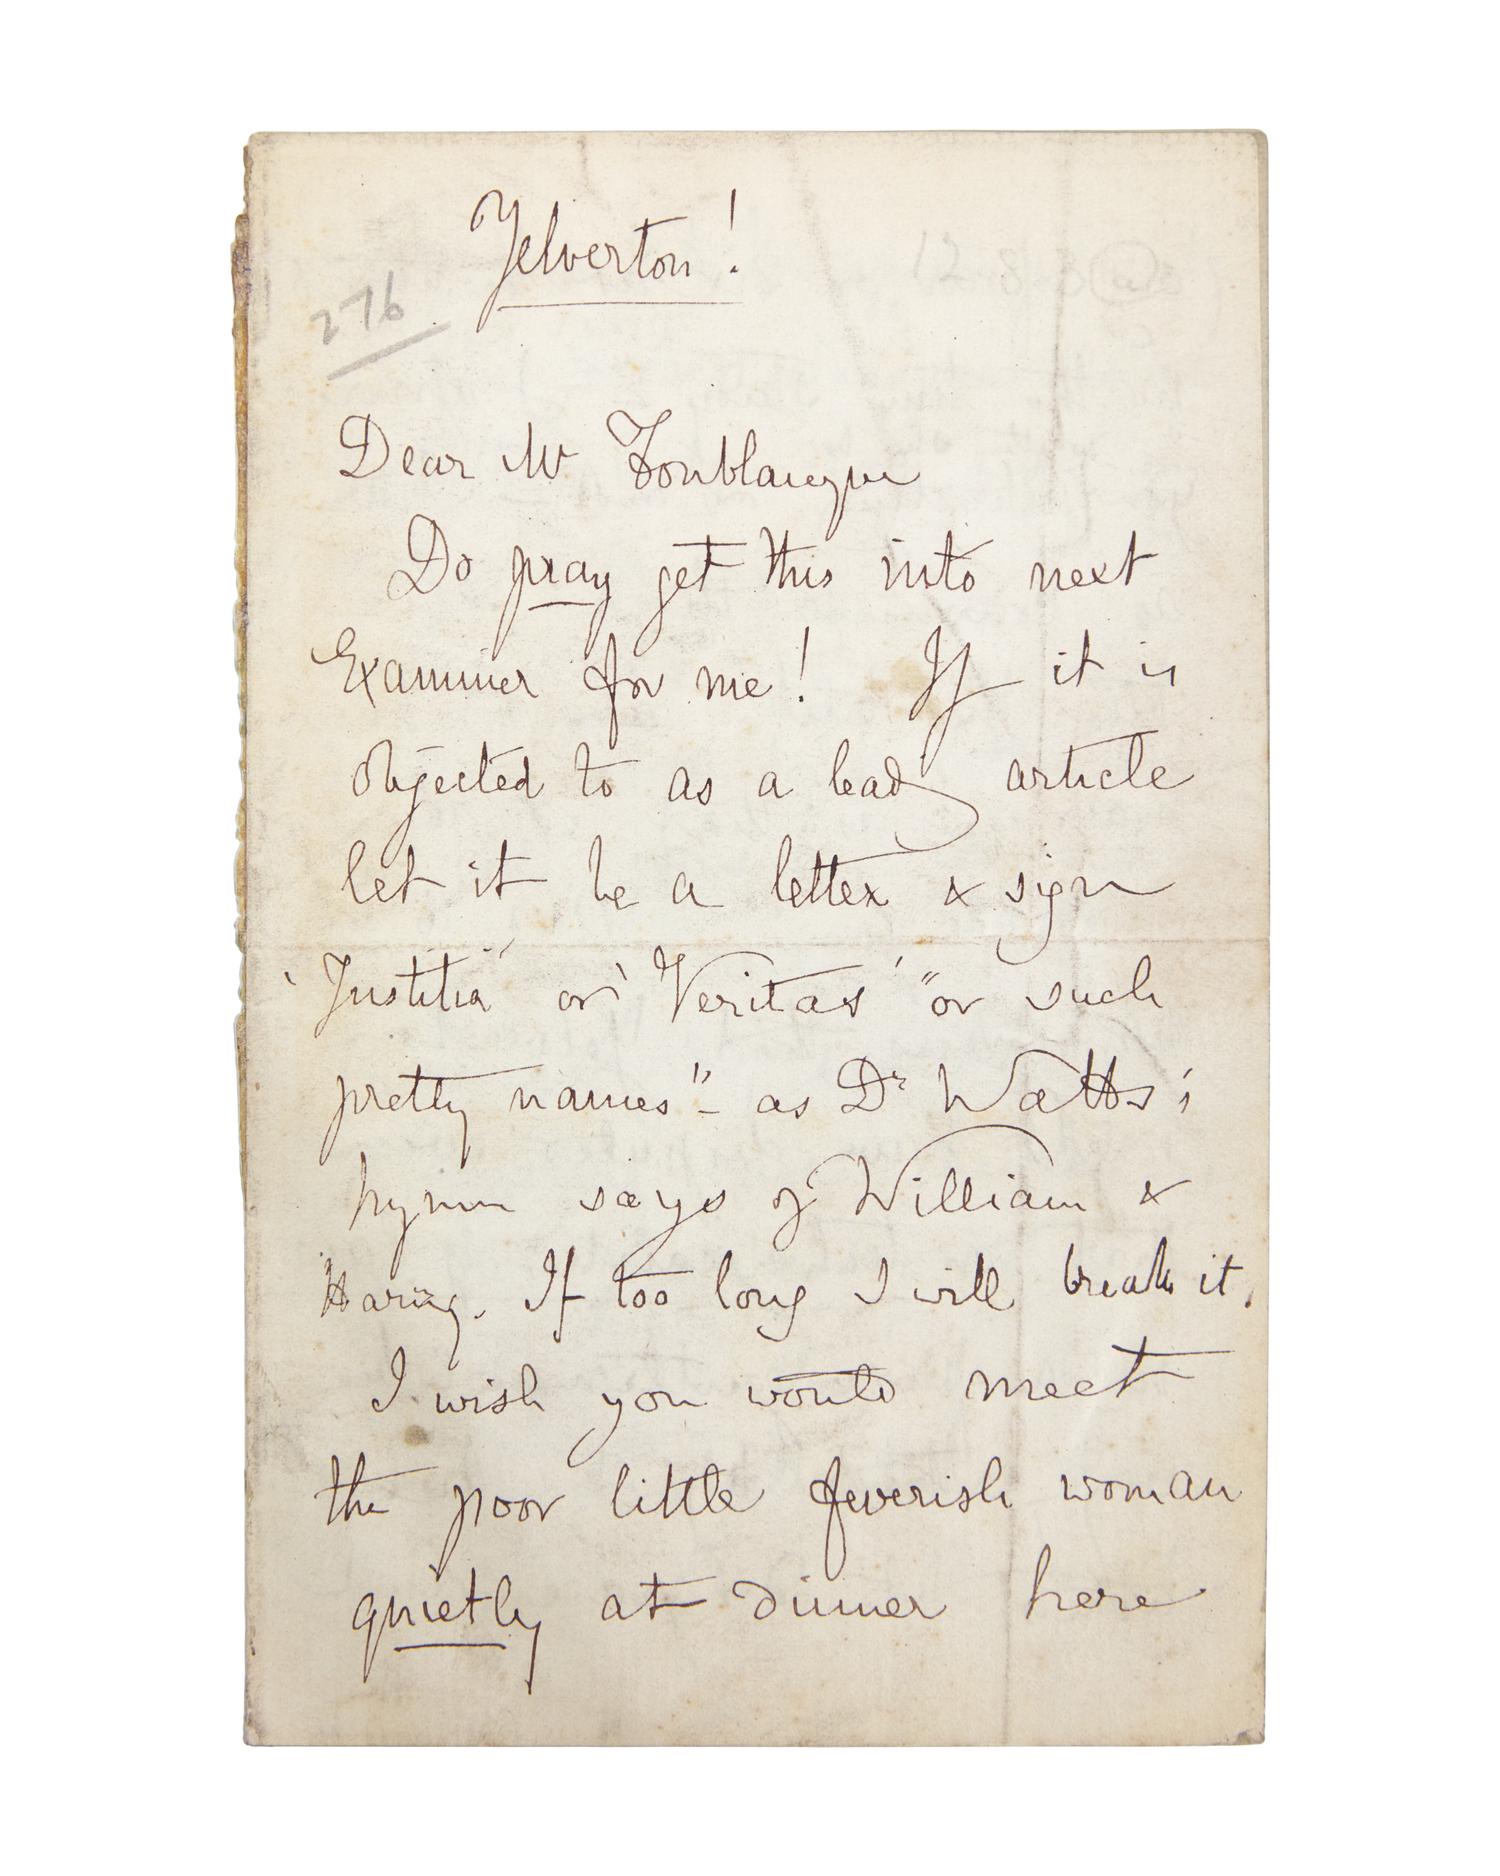 Yelverton!
276
Dear Mr Fonblanque
Do pray get this into next
Examiner for me! If it is
objected to as a leadg article
let it be a letter & sign
'Justitia" or 'Veritas' "or such
pretty names"- as Dr Watts's
hymn says of William &
Harry. If too long I will break it.
I wish you would meet
the poor little feverish woman
quietly at dinner here